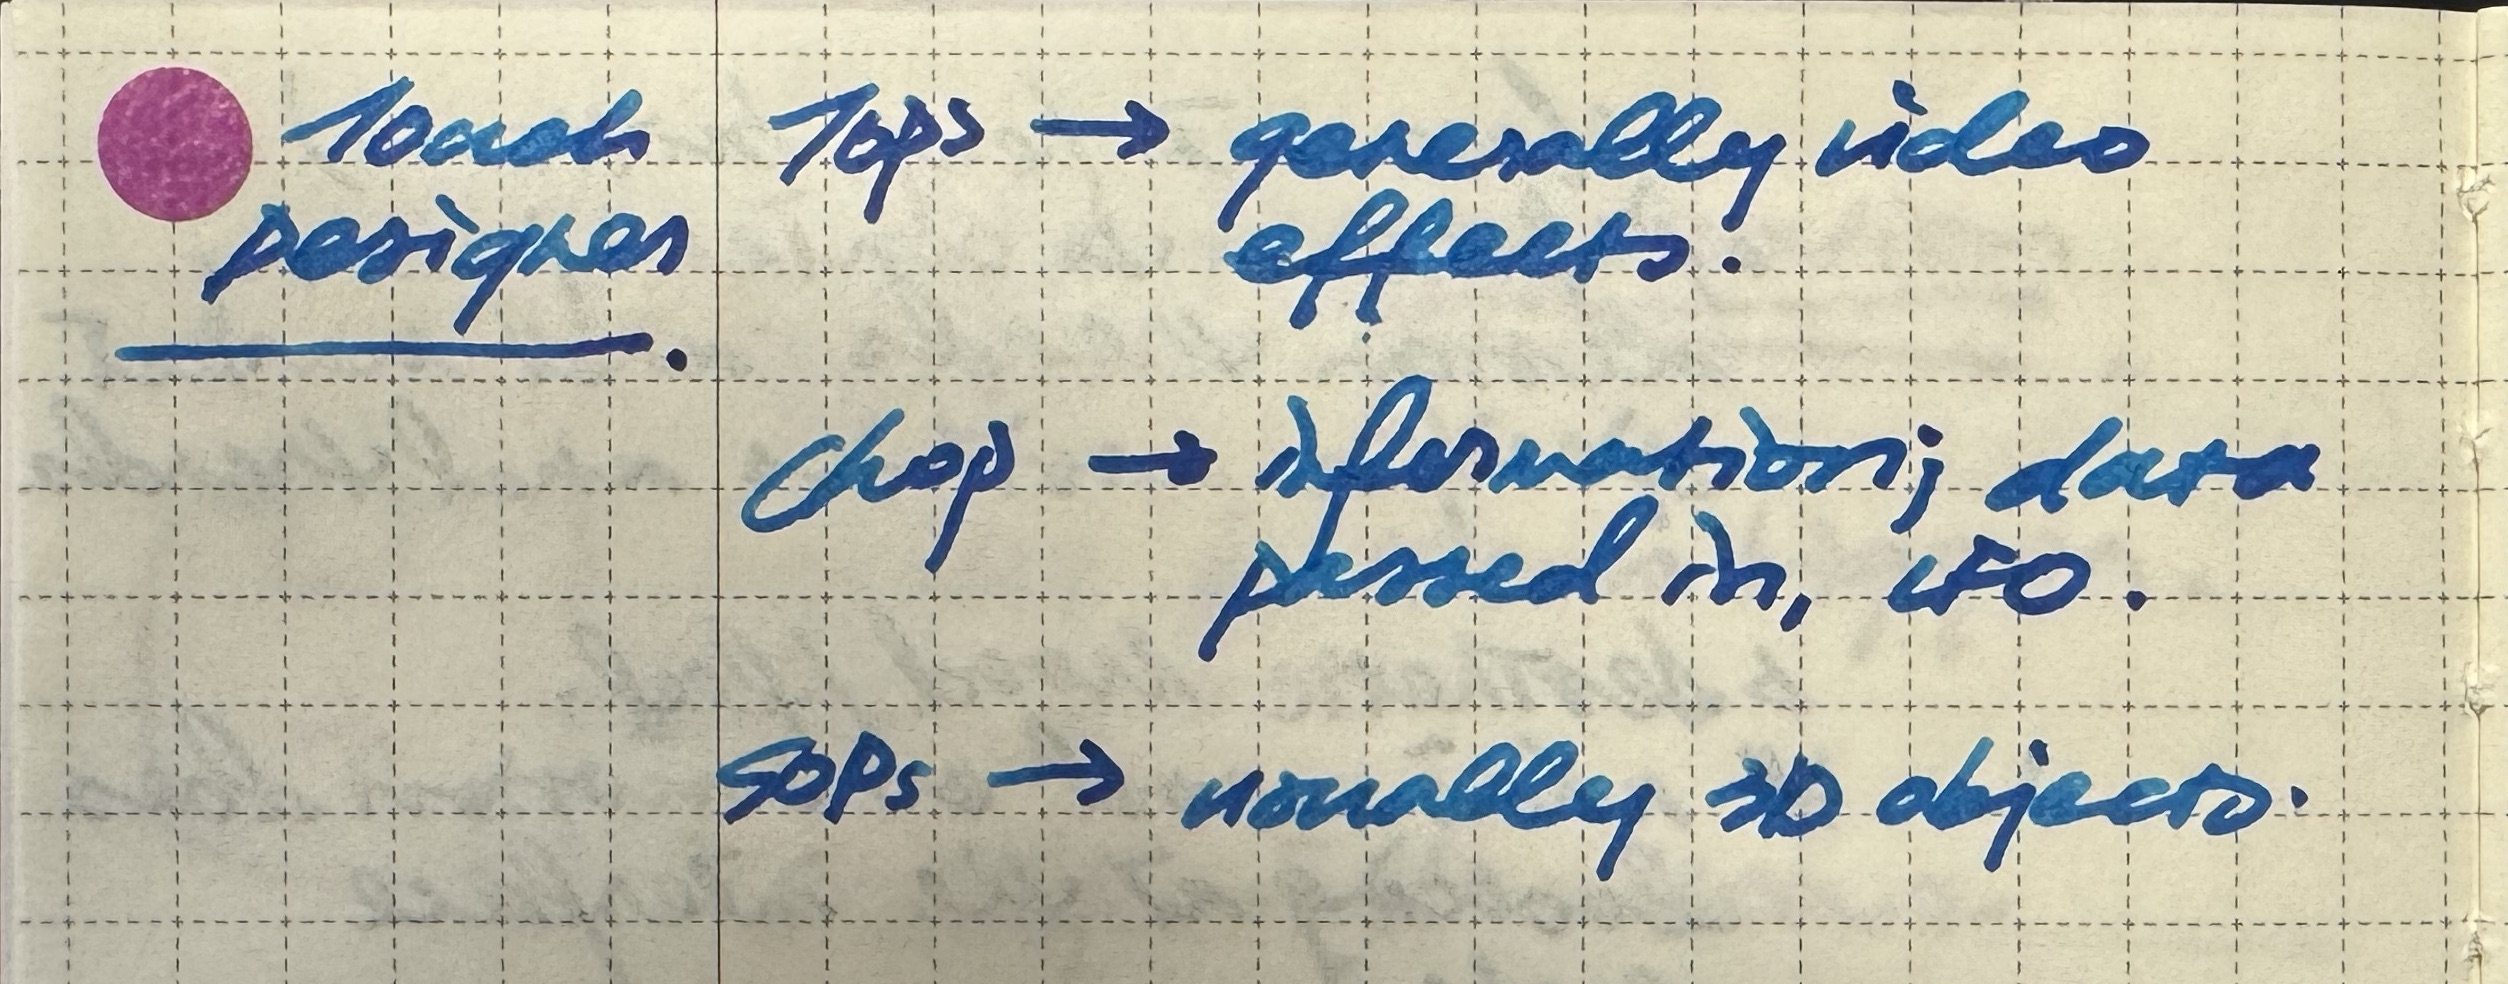 Touch
Designer
TOPs → generally video
effects.
CHOP → information; data
passed in, LFO.
SOPs → usually 3D objects.